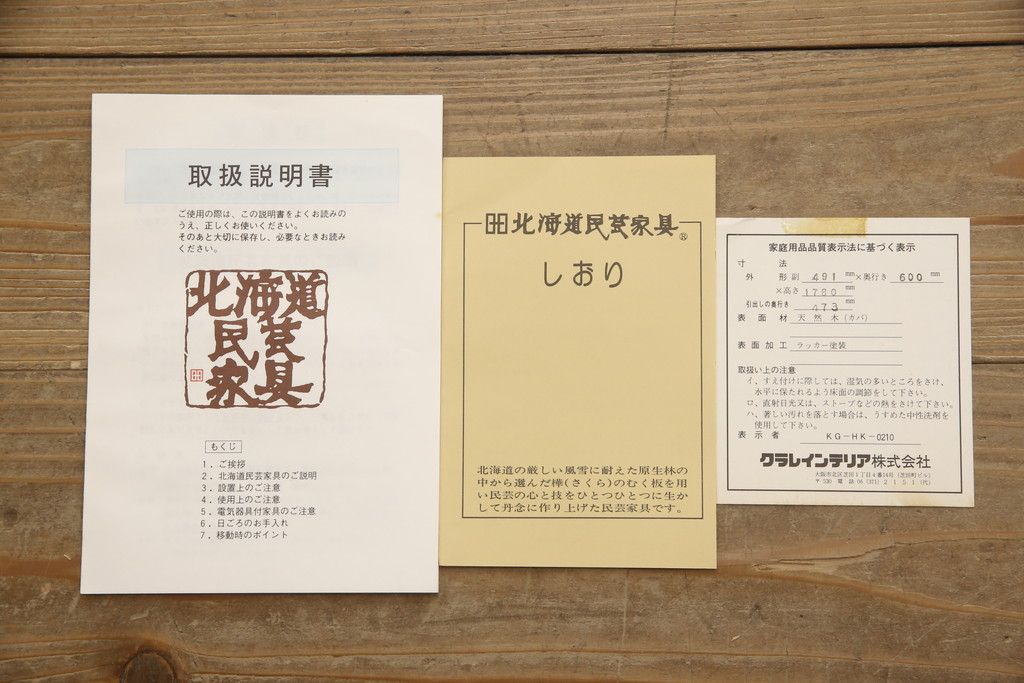 取扱説明書
ご使用の際は、この説明書をよくお読みの
うえ、正しくお使いください。
そのあと大切に保存し、必要なときお読み
ください。
北海道
民芸
家具
もくじ
1．ご挨拶
2．北海道民芸家具のご説明
3．設置上のご注意
4．使用上のご注意
5．電気器具付家具のご注意
6．日ごろのお手入れ
7．移動時のポイント
北海道民芸家具®
しおり
北海道の厳しい風雪に耐えた原生林の
中から選んだ樺(さくら)のむく板を用
い民芸の心と技をひとつひとつに生か
して丹念に作り上げた民芸家具です。
家庭用品品質表示法に基づく表示
寸法
外形 副 491 mm ×奥行き 600 mm
×高さ 1780 mm
引出しの奥行き 473 mm
表面材 天然木(カバ)
表面加工 ラッカー塗装
取扱い上の注意
イ、すえ付けに際しては、湿気の多いところをさけ、
水平に保たれるよう床面の調節をして下さい。
ロ、直射日光又は、ストーブなどの熱をさけて下さい。
ハ、著しい汚れを落とす場合は、うすめた中性洗剤を
使用して下さい。
表示者 KG-HK-0210
クラレインテリア株式会社
大阪市北区芝田1丁目4番14号(芝田町ビル)
〒530 電話 06 (371) 2151 (代)